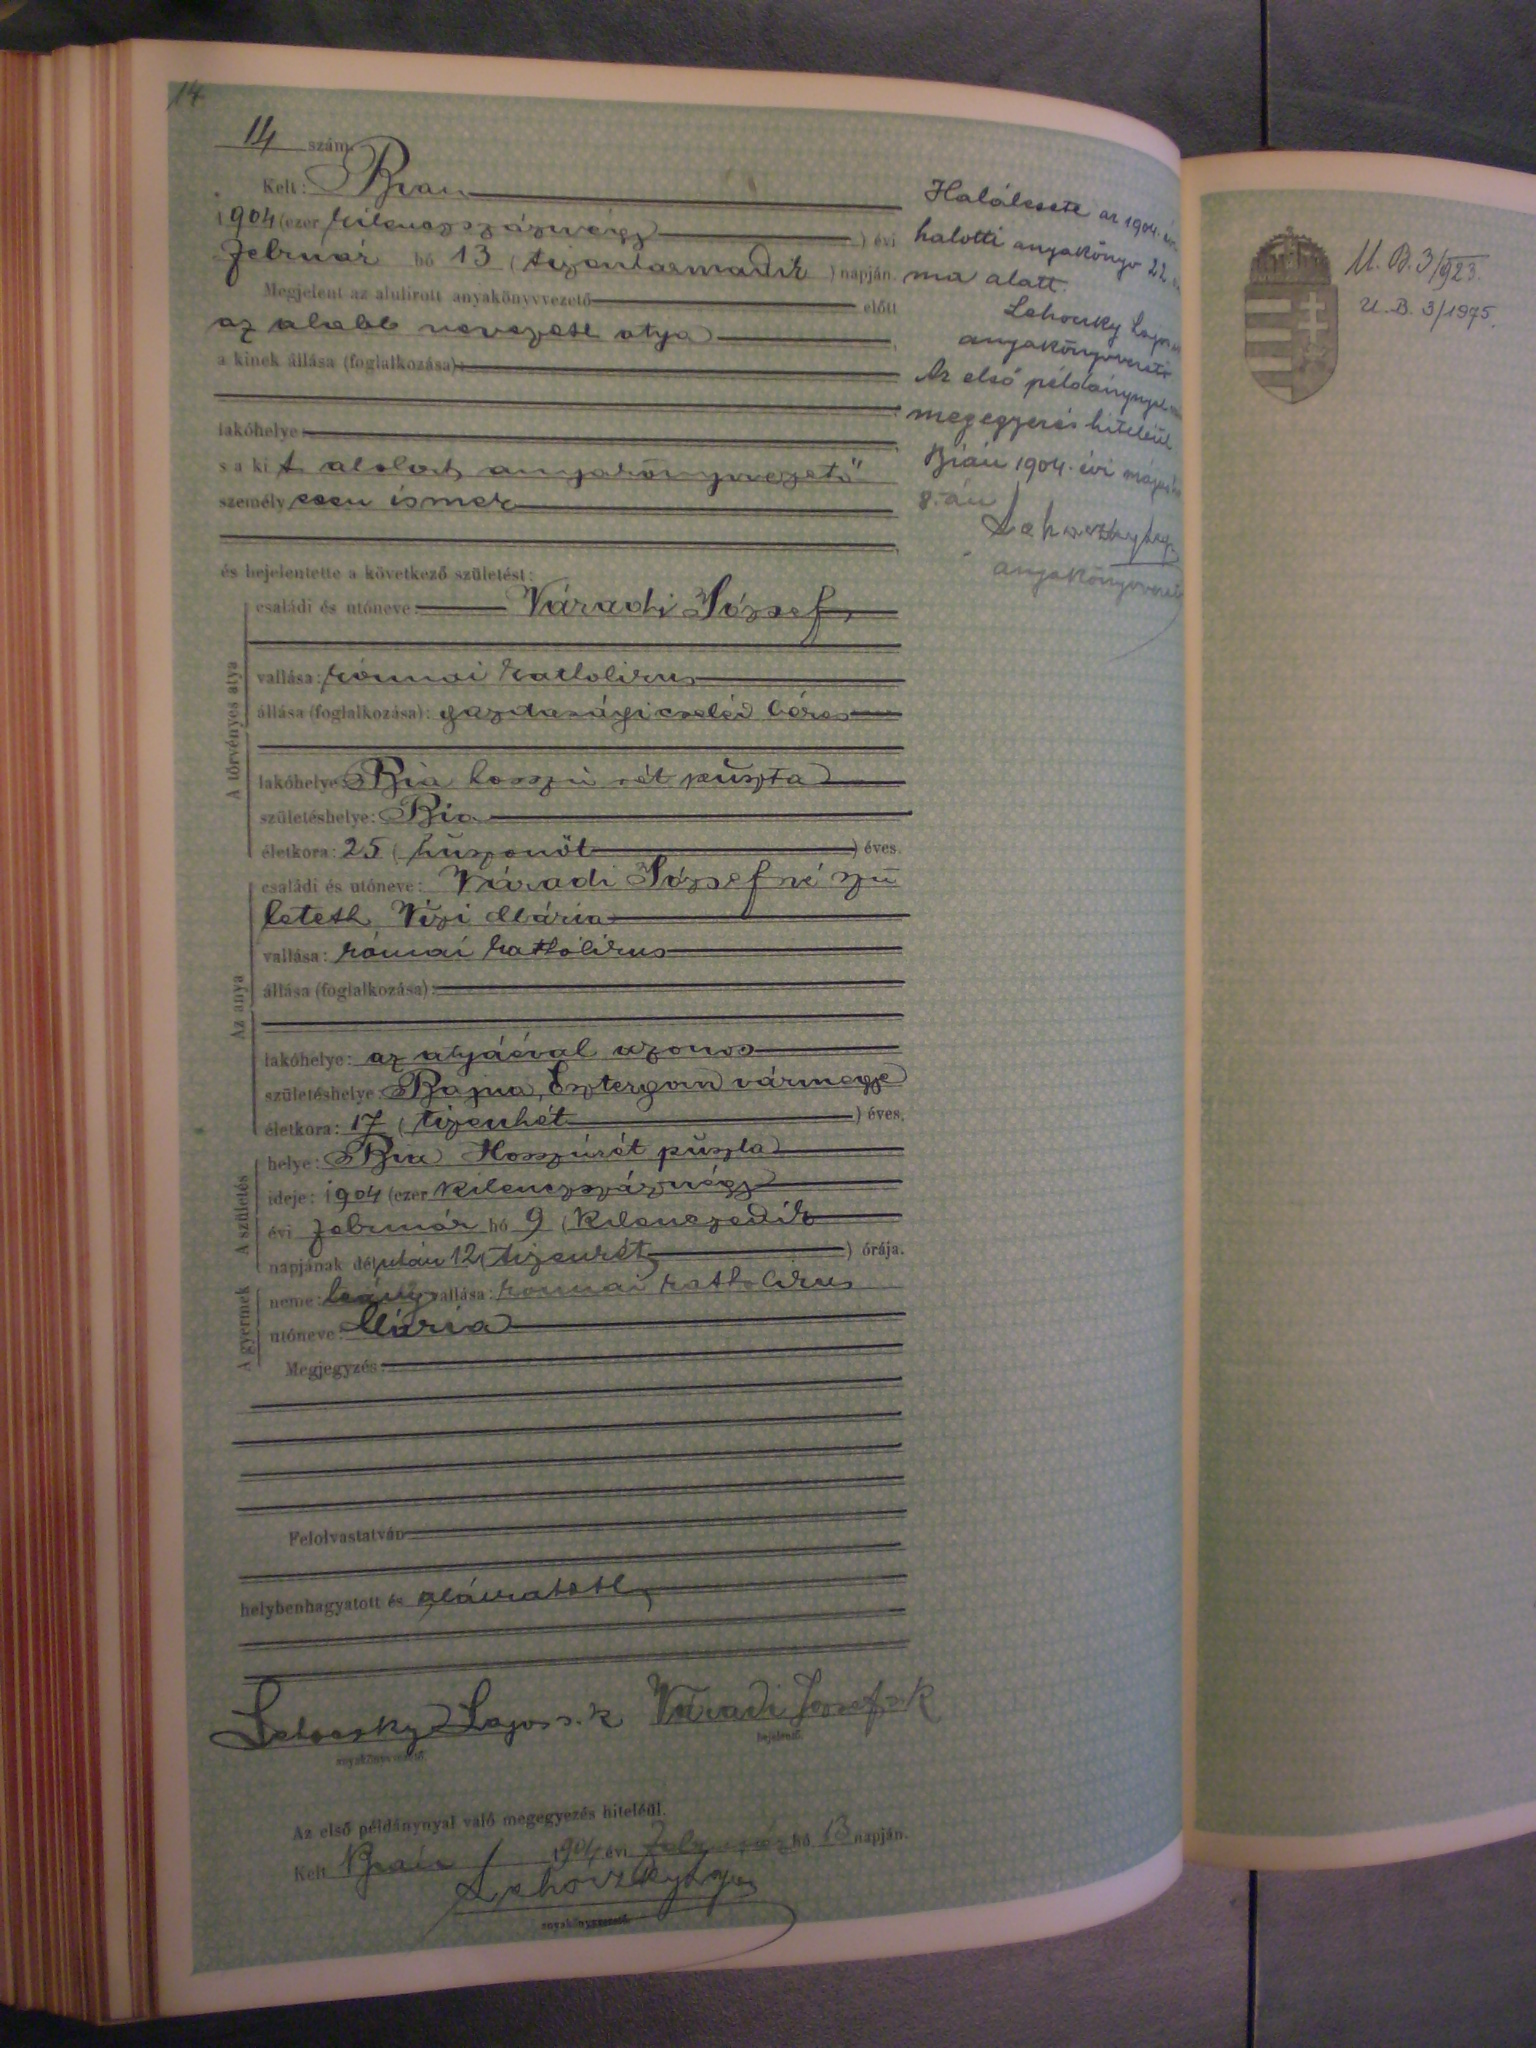 14
14 szám.
Kelt: Bián
1904 (ezer kilenczszáznégy) évi
február hó 13 (tizenharmadik) napján.
Megjelent az alulirott anyakönyvvezető előtt
az alább nevezett atya
a kinek állása (foglalkozása):
lakóhelye:
s a kit alulirt anyakönyvvezető
személyesen ismer
és bejelentette a következő születést:
A törvényes atya
családi és utóneve: Váradi József
vallása: római katholikus
állása (foglalkozása): gazdasági cseléd béres
lakóhelye: Bia hosszú rét puszta
születéshelye: Bia
életkora: 25 (huszonöt) éves.
Az anya
családi és utóneve: Váradi Józsefné szü
letett Vizi Mária
vallása: római katholikus
állása (foglalkozása):
lakóhelye: az atyáéval azonos
születéshelye: Bajna, Esztergom vármegye
életkora: 17 (tizenhét) éves.
A születés
helye: Bia Hosszúrét puszta
ideje: 1904 (ezer kilenczszáznégy
évi február hó 9 (kilenczedik
napjának délután 12 (tizenkét) órája.
A gyermek
neme: leány vallása: római katholikus
utóneve: Mária
Megjegyzés:
Felolvastatván
helybenhagyatott és aláiratott
Lehoczky Lajos s. k Váradi József s. k
anyakönyvvezető bejelentő.
Az első példánynyal való megegyezés hiteléül.
Kelt Bián 1904 évi február hó 13 napján.
Lehoczky Lajos
anyakönyvvezető.
Halálesete az 1904. évi
halotti anyakönyv 22.
ma alatt.
Lehoczky Lajos
anyakönyvvezető
Az első példánynyal
megegyezés hiteléül
Bián 1904. évi május
8.-án
Lehoczky
anyakönyvvezető
U. B. 3/923.
U. B. 3/1975.